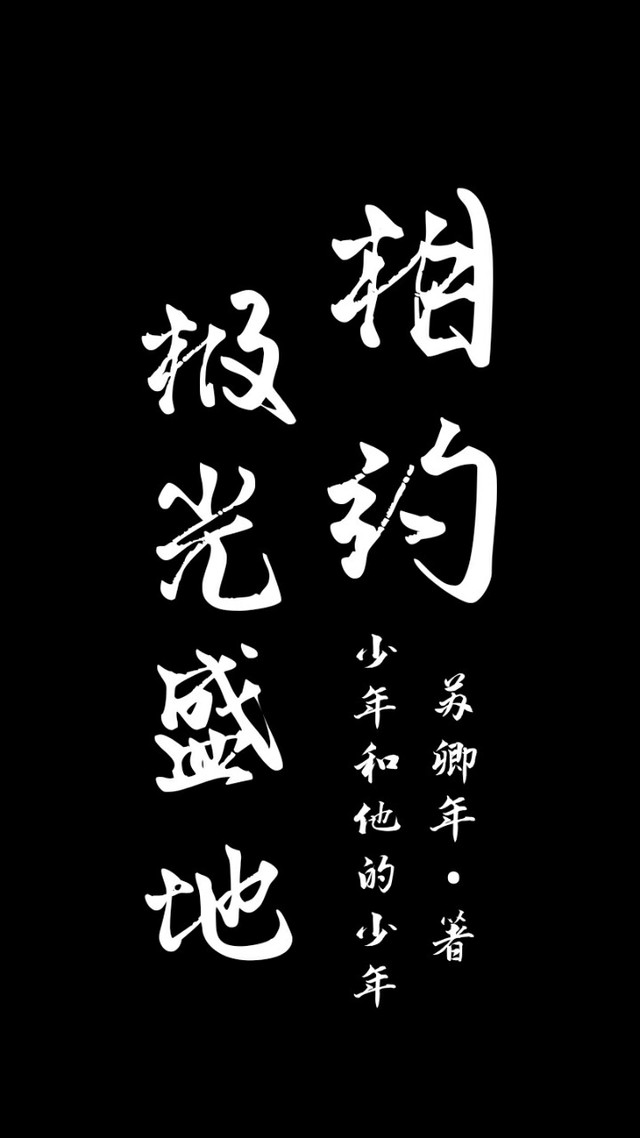 相约
极光盛地
苏卿年·著
少年和他的少年